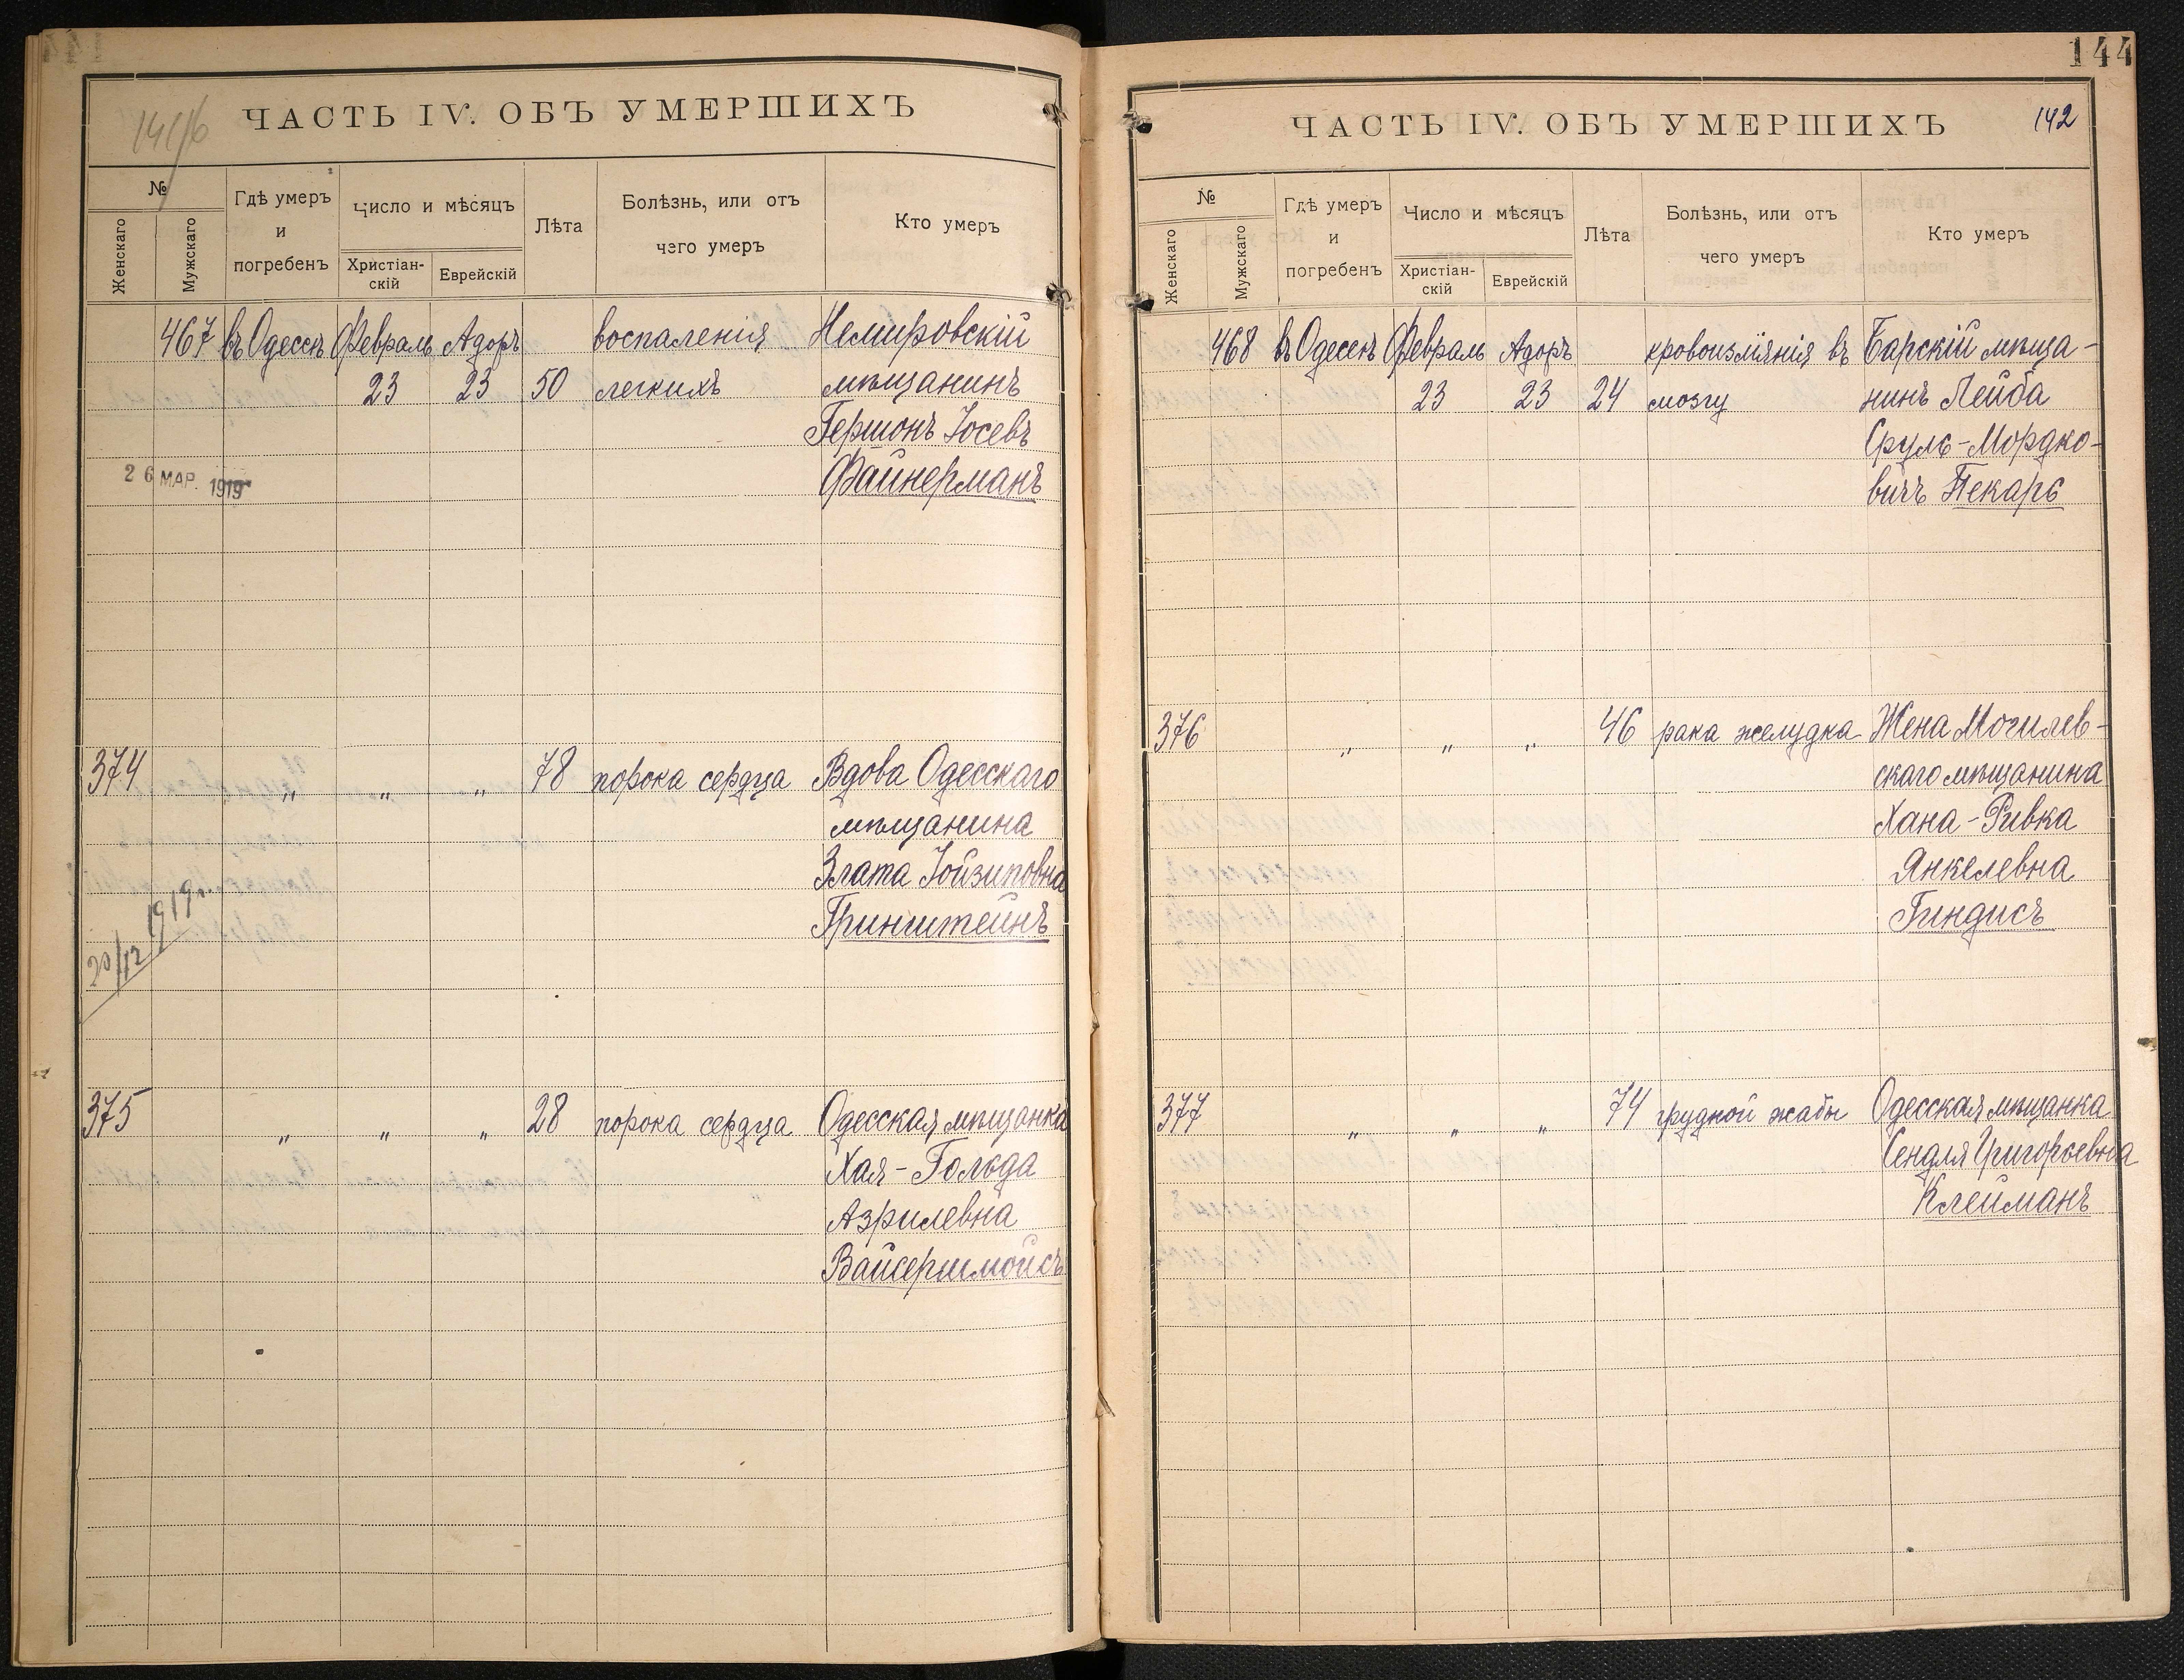 ЧАСТЬ IV. ОБЪ УМЕРШИХЪ
№
Женскаго
Мужскаго
Гдѣ умеръ
и
погребенъ
Число и мѣсяцъ
Христіан-
скій
Еврейскій
Лѣта
Болѣзнь, или отъ
чего умеръ
Кто умеръ
467 въ Одессѣ Февраль Адоръ воспаленія Немировскій
23 23 50 легкихъ мѣщанинъ
Гершонъ Іосевъ
Файнерманъ
26 МАР. 1919
374 " " " 78 порока сердца Вдова Одесскаго
мѣщанина
Злата Іойзиповна
Гринштейнъ
20/12 1919г.
375 " " " 28 порока сердца Одесская мѣщанка
Хая-Гольда
Азрилевна
Вайсершмойсъ
144
ЧАСТЬ IV. ОБЪ УМЕРШИХЪ 142
№
Женскаго
Мужскаго
Гдѣ умеръ
и
погребенъ
Число и мѣсяцъ
Христіан-
скій
Еврейскій
Лѣта
Болѣзнь, или отъ
чего умеръ
Кто умеръ
468 въ Одессѣ Февраль Адоръ кровоизліянія въ Барскій мѣща-
23 23 24 мозгу нинъ Лейба
Сруль-Мордко-
вичъ Пекарь
376 " " " 46 рака желудка Жена Могилев-
скаго мѣщанина
Хана-Ривка
Янкелевна
Гиндисъ
377 " " " 74 грудной жабы Одесская мѣщанка
Сендля Григорьевна
Клейманъ